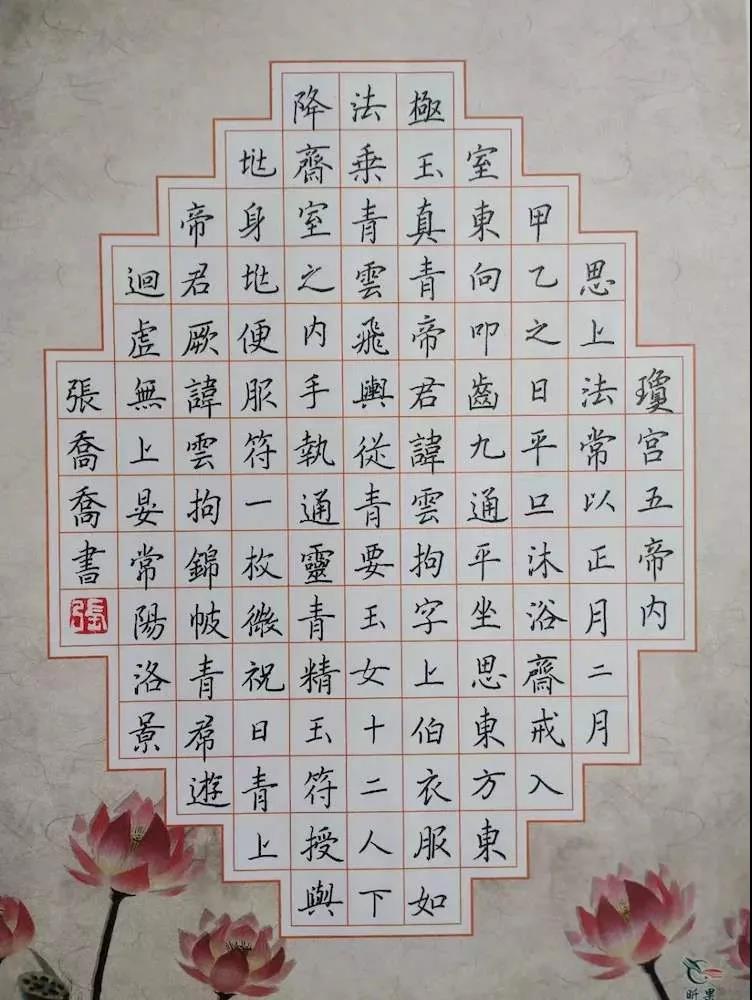 瓊宮五帝內
思上法常以正月二月
甲乙之日平旦沐浴齋戒入
室東向叩齒九通平坐思東方東
極玉真青帝君諱雲拘字上伯衣服如
法乘青雲飛輿從青要玉女十二人下
降齋室之內手執通靈青精玉符授與
身便服符一枚微祝曰青上
帝君厥諱雲拘錦帔青帬遊
迴虛無上晏常陽洛景
張喬喬書
張